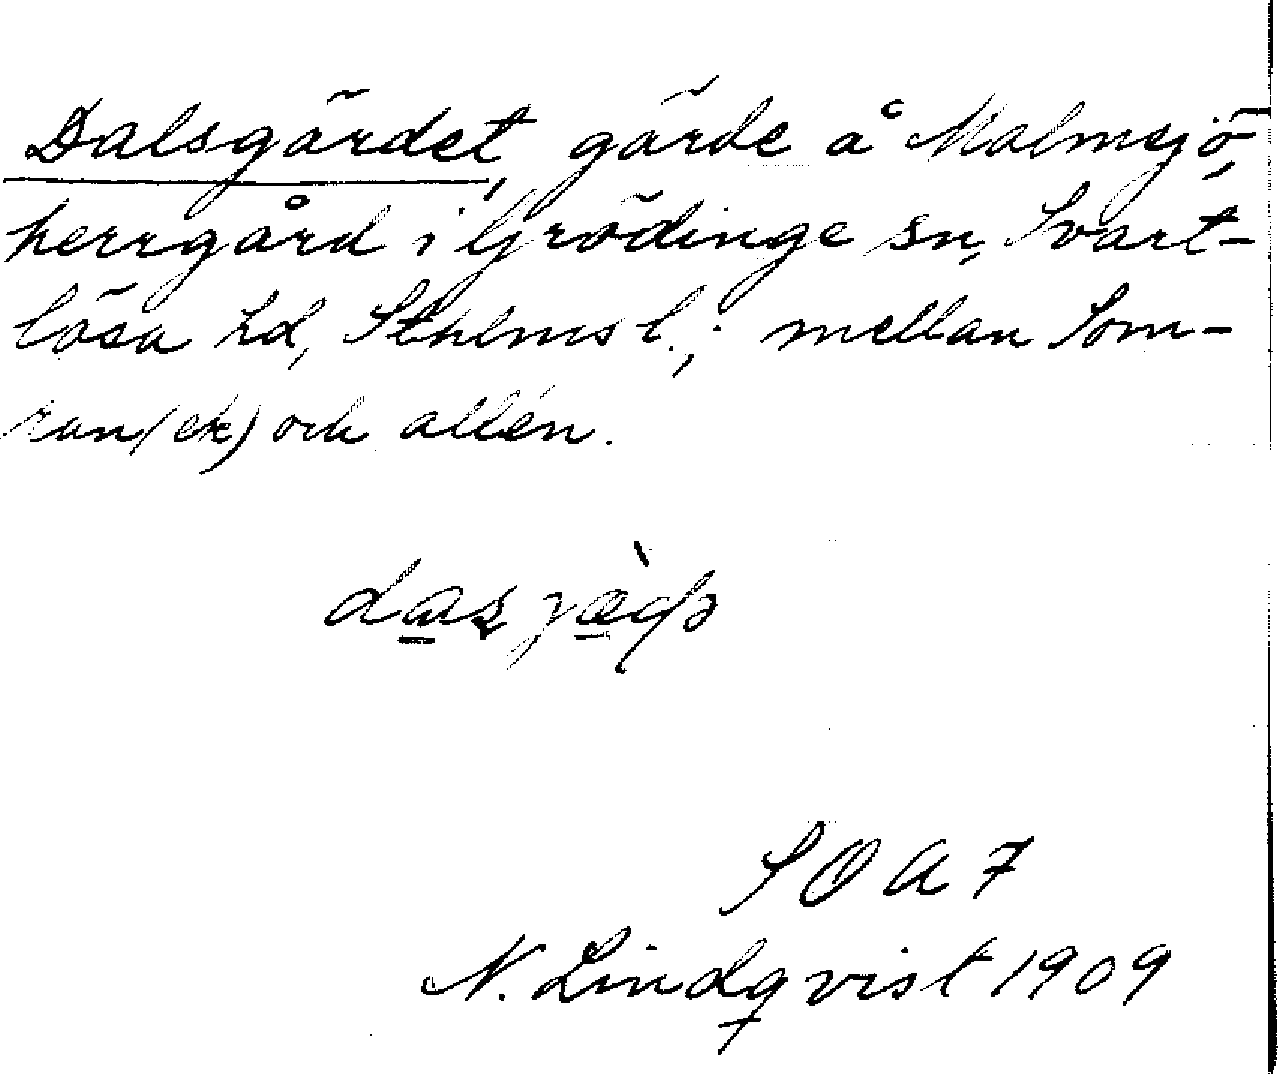 Dalsgärdet, gärde å Malmsjö,
herrgård i Grödinge sn, Svart-
lösa hd, Sthlms l.; mellan Som-
ran (ek) och allén.
SOA 7
N. Lindqvist 1909